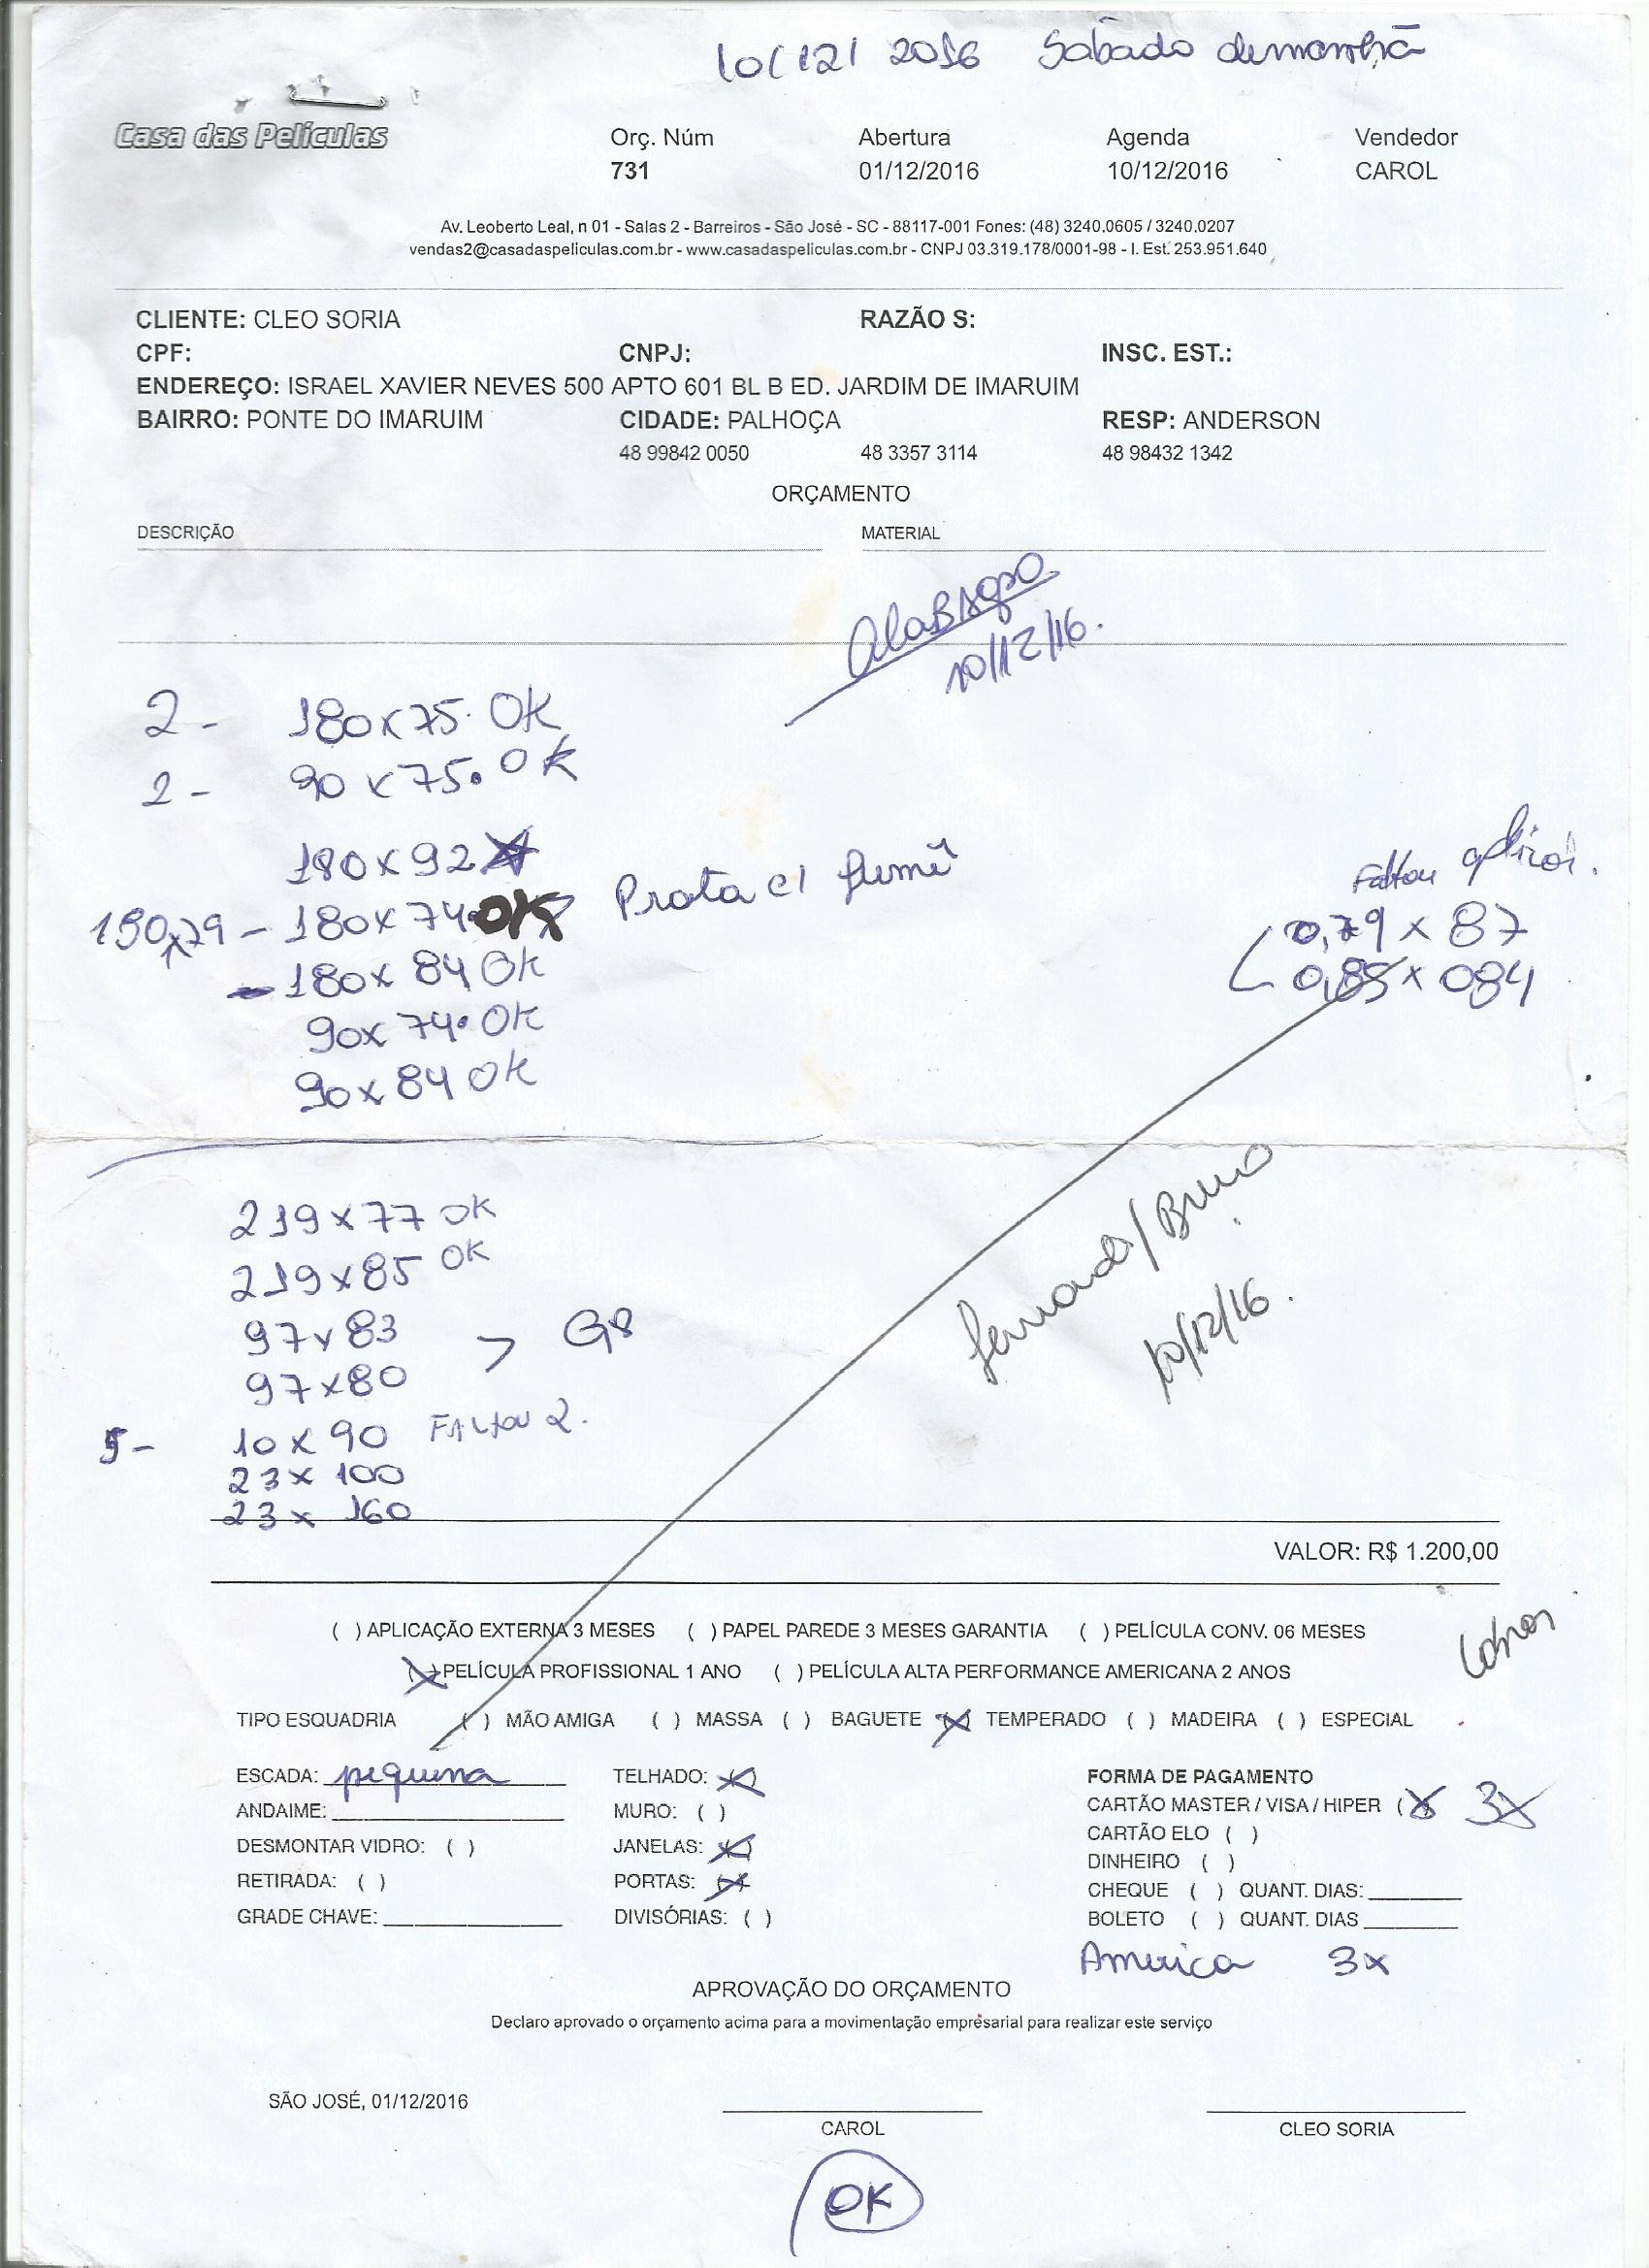 10/12/2016 Sábado de manhã
Casa das Películas
Orç. Núm Abertura Agenda Vendedor
731 01/12/2016 10/12/2016 CAROL
Av. Leoberto Leal, n 01 - Salas 2 - Barreiros - São José - SC - 88117-001 Fones: (48) 3240.0605 / 3240.0207
vendas2@casadaspeliculas.com.br - www.casadaspeliculas.com.br - CNPJ 03.319.178/0001-98 - I. Est. 253.951.640
CLIENTE: CLEO SORIA RAZÃO S:
CPF: CNPJ: INSC. EST.:
ENDEREÇO: ISRAEL XAVIER NEVES 500 APTO 601 BL B ED. JARDIM DE IMARUIM
BAIRRO: PONTE DO IMARUIM CIDADE: PALHOÇA RESP: ANDERSON
48 99842 0050 48 3357 3114 48 98432 1342
ORÇAMENTO
DESCRIÇÃO MATERIAL
10/12/16.
2 - 180x75. OK
2 - 90x75. OK
180x92
180x74 OK Prata c/ fumê
180x84 OK
90x74. OK
90x84 OK
Faltou
0,79 x 87
0,85 x 084
219x77 OK
219x85 OK
97x83
97x80 > G8
5 - 10x90 FALTOU 2.
23x100
23x160
Fernando/Bruno
10/12/16.
VALOR: R$ 1.200,00
( ) APLICAÇÃO EXTERNA 3 MESES ( ) PAPEL PAREDE 3 MESES GARANTIA ( ) PELÍCULA CONV. 06 MESES
(X) PELÍCULA PROFISSIONAL 1 ANO ( ) PELÍCULA ALTA PERFORMANCE AMERICANA 2 ANOS
TIPO ESQUADRIA ( ) MÃO AMIGA ( ) MASSA ( ) BAGUETE (X) TEMPERADO ( ) MADEIRA ( ) ESPECIAL
ESCADA: pequena TELHADO: (X) FORMA DE PAGAMENTO
ANDAIME: MURO: ( ) CARTÃO MASTER / VISA / HIPER (X) 3x
DESMONTAR VIDRO: ( ) JANELAS: (X) CARTÃO ELO ( )
RETIRADA: ( ) PORTAS: (X) DINHEIRO ( )
GRADE CHAVE: DIVISÓRIAS: ( ) CHEQUE ( ) QUANT. DIAS:
BOLETO ( ) QUANT. DIAS
America 3x
APROVAÇÃO DO ORÇAMENTO
Declaro aprovado o orçamento acima para a movimentação empresarial para realizar este serviço
SÃO JOSÉ, 01/12/2016
CAROL CLEO SORIA
OK